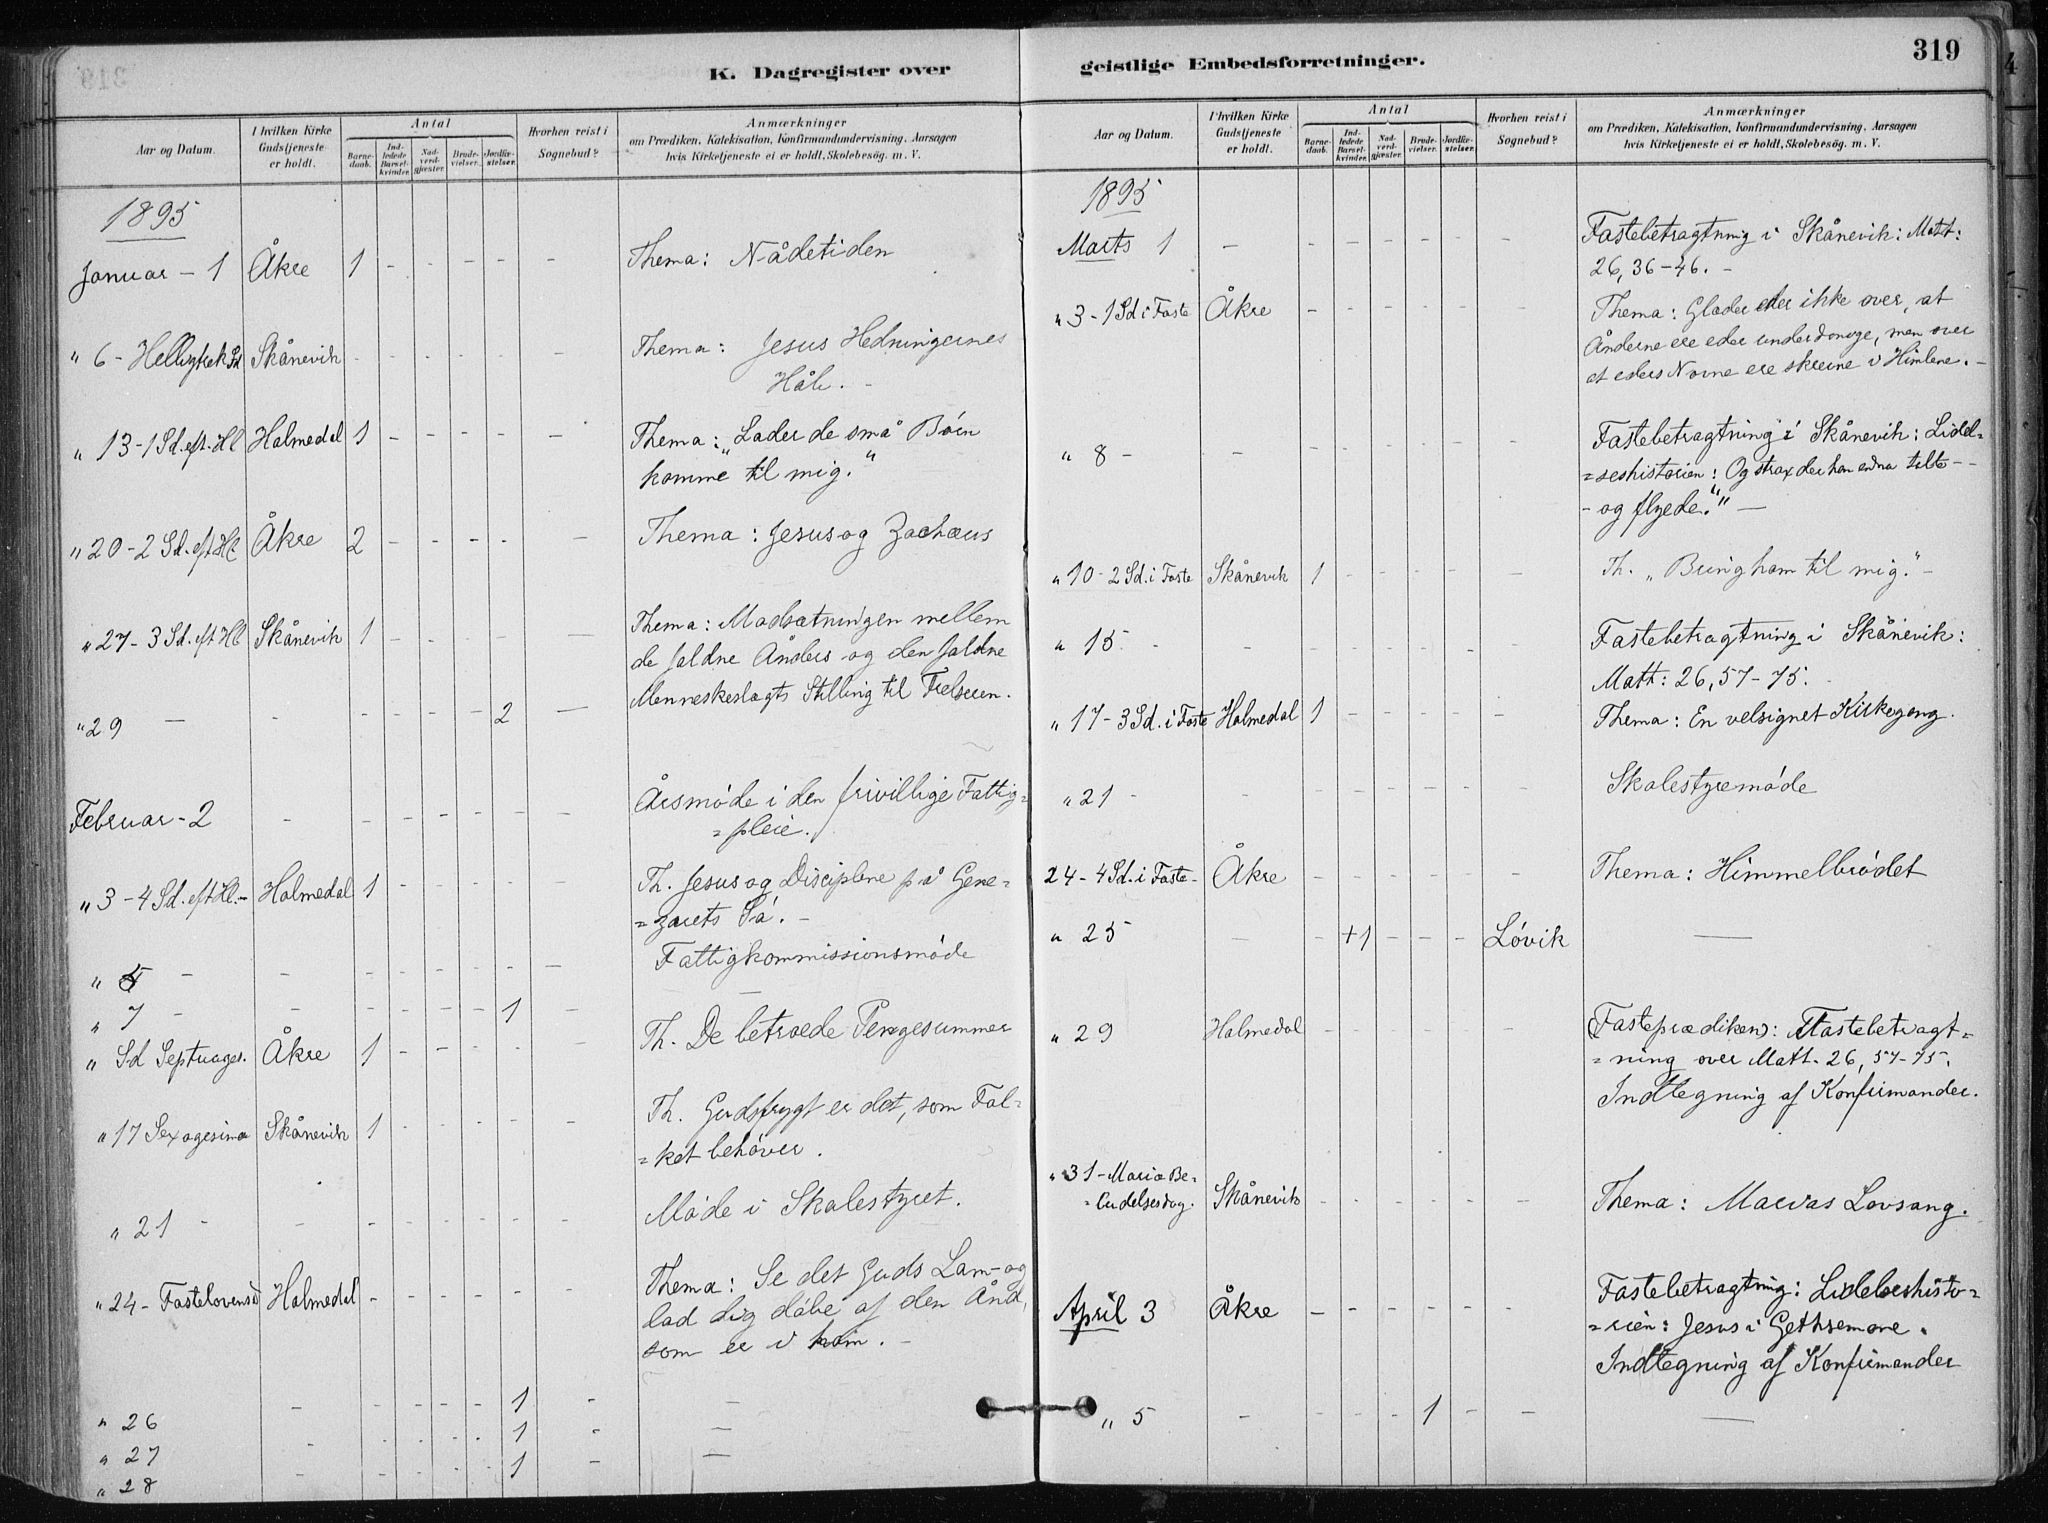 K. Dagregister over
Aar og Datum.
I hvilken Kirke Gudstjeneste er holdt.
Antal
Barnedaab.
Indledede Barselkvinder.
Nadverdgjæster.
Brudevielser.
Jordfæstelser.
Hvorhen reist i Sognebud?
Anmærkninger
om Prædiken, Katekisation, Konfirmandundervisning, Aarsagen
hvis Kirketjeneste ei er holdt, Skolebesög. m. V.
1895
Januar - 1 Åkre 1 - - - - - Thema: Nådetiden
" 6 - Skånevik - - - - - - Thema: Jesus Hedningernes
Håb. -
" 13 - 1 Sd. eft. Hl Holmedal 1 - - - - - Thema: "Lader de små Børn
komme til mig."
" 20 - 2 Sd. eft Hl Åkre 2 - - - - - Thema: Jesus og Zachæus
" 27 - 3 Sd. eft Hl Skånevik 1 - - - - - Thema: Modsætningen mellem
de faldne Ånders og den faldne
Menneskeslægts Stilling til Frelseren.
" 29 - - - - - - 2 -
Februar - 2 - - - - - - - Årsmøde i den frivillige Fattig=
=pleie.
" 3 - 4 Sd. eft Hl. - Holmedal 1 - - - - - Th. Jesus og Disciplene på Gene=
=zarets Sø. -
" 5 - - - - - - - - Fattigkommissionsmøde
" 7 - - - - - - 1 -
" Sd Septuages. Åkre 1 - - - - - Th. De betroede Pengesummer
" 17 Sexagesima Skånevik 1 - - - - - Th. Gudsfrygt er det, som Fol=
=ket behøver.
" 21 - - - - - - - - Møde i Skolestyret.
" 24 - Fastelovens Holmedal - - - - - - Thema: Se det Guds Lam - og
lad dig døbe af den Ånd,
som er i ham. -
" 26 - - - - - 1 - -
" 27 - - - - - 1 - -
" 28 - - - - - 1 -
geistlige Embedsforretninger.
319
Aar og Datum.
I hvilken Kirke Gudstjeneste er holdt.
Antal
Barnedaab.
Indledede Barselkvinder.
Nadverdgjæster.
Brudevielser.
Jordfæstelser.
Hvorhen reist i Sognebud?
Anmærkninger
om Prædiken, Katekisation, Konfirmandundervisning, Aarsagen
hvis Kirketjeneste ei er holdt, Skolebesög. m. V.
1895
Marts 1 - - - - - - - Fastebetragtning i Skånevik: Matt:
26, 36-46. -
" 3 - 1 Sd i Faste Åkre - - - - - - Thema: Glæder eder ikke over, at
Ånderne ere eder underdanige, men over
at eders Navne ere skrevne i Himlene. -
" 8 - - - - - - - - Fastebetragtning i Skånevik: Lidel=
=seshistorien: Og strax der han endnu talte - -
- og flyede." -
" 10 - 2 Sd. i Faste Skånevik 1 - - - - - Th. "Bring ham til mig." -
" 15 - - - - - - - - Fastebetragtning i Skånevik:
Matt: 26, 57-75.
" 17 - 3 Sd. i Faste Holmedal 1 - - - - - Thema: En velsignet Kirkegang.
" 21 - - - - - - - - Skolestyremøde
24 - 4 Sd. i Faste - Åkre - - - - - - Thema: Himmelbrødet
" 25 - - +1 - - - Løvik -
" 29 Holmedal - - - - - - (Fasteprædiken): Fastebetragt=
=ning over Matt. 26, 57-75.
Indtegning af Konfirmander.
" 31 - Mariæ Be-
=budelsesdag. Skånevik - - - - - - Thema: Marias Lovsang.
April 3 Åkre - - - - - - Fastebetragtning: Lidelseshisto=
=rien: Jesus i Gethsemane.
Indtegning af Konfirmander
" 5 - - - - 1 - - -